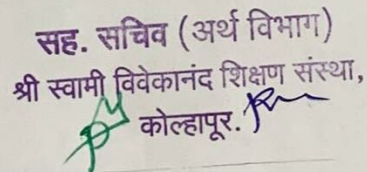 सह. सचिव (अर्थ विभाग)
श्री स्वामी विवेकानंद शिक्षण संस्था,
कोल्हापूर.